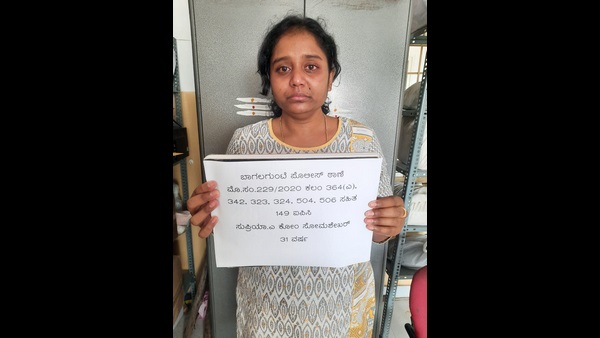 ಬಾಗಲಗುಂಟೆ ಪೊಲೀಸ್ ಠಾಣೆ
ಮೊ.ಸಂ.229/2020 ಕಲಂ 364(ಎ),
342, 323, 324, 504, 506 ಸಹಿತ
149 ಐಪಿಸಿ
ಸುಪ್ರಿಯಾ.ಎ ಕೋಂ ಸೋಮಶೇಖರ್
31 ವರ್ಷ